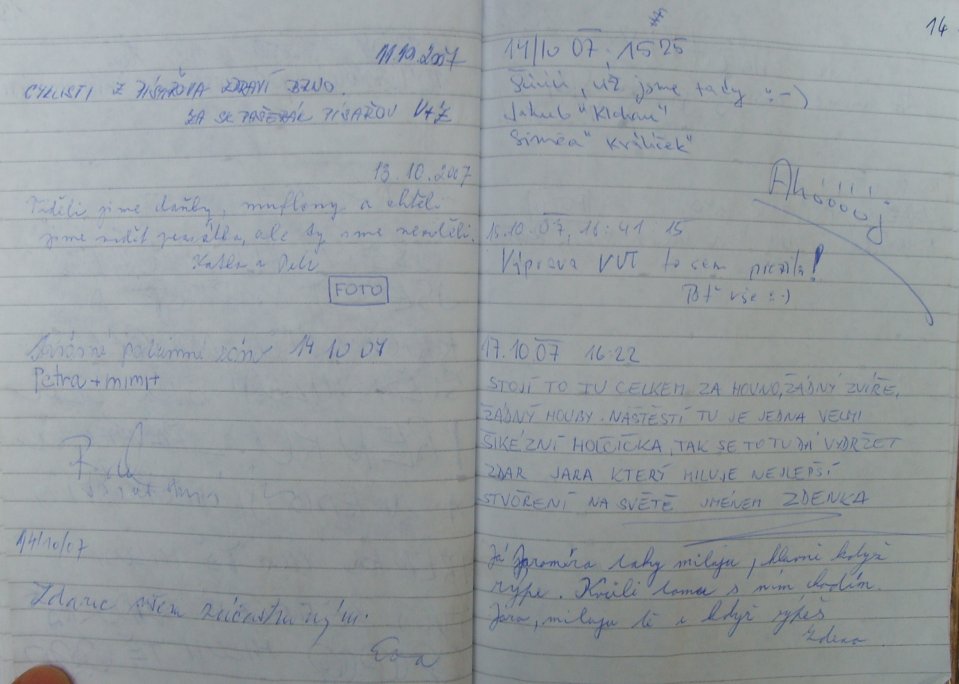 11.10.2007
CYKLISTI Z PÍSAŘOVA ZDRAVÍ BRNO.
ZA SK PAŠERÁK PÍSAŘOV V+Z
13.10.2007
Viděli jsme daňky, muflony a chtěli
jsme vidět prasátka, ale ty sme neviděli.
Katka a Petr
FOTO
Krásné podzimní 14 10 07
Petra + mimi +
14/10/07
Zdarec všem zúčastněným.
Eva
14
14/10 07, 15 25
už jsme tady :-)
Jakub "Klokan"
Siméa "Králíček"
Ahóóóójjjj
15.10.07, 16:41 15
Výprava VUT to sem přežila!
Btˇ vše :-)
17.10.07 16:22
STOJÍ TO TU CELKEM ZA HOVNO, ŽÁDNÝ ZVÍŘE,
ŽÁDNÝ HOUBY. NAŠTĚSTÍ TU JE JEDNA VELMI
ŠIKÉZNÍ HOLČIČKA, TAK SE TO TU DÁ VYDRŽET
ZDAR JARA KTERÝ MILUJE NEJLEPŠÍ
STVOŘENÍ NA SVĚTĚ JMÉNEM ZDENKA
Já Jaromíra taky miluju, hlavně když
rýpe. Kvůli tomu s ním chodím.
Jára, miluju tě i když rýpeš
Zdena